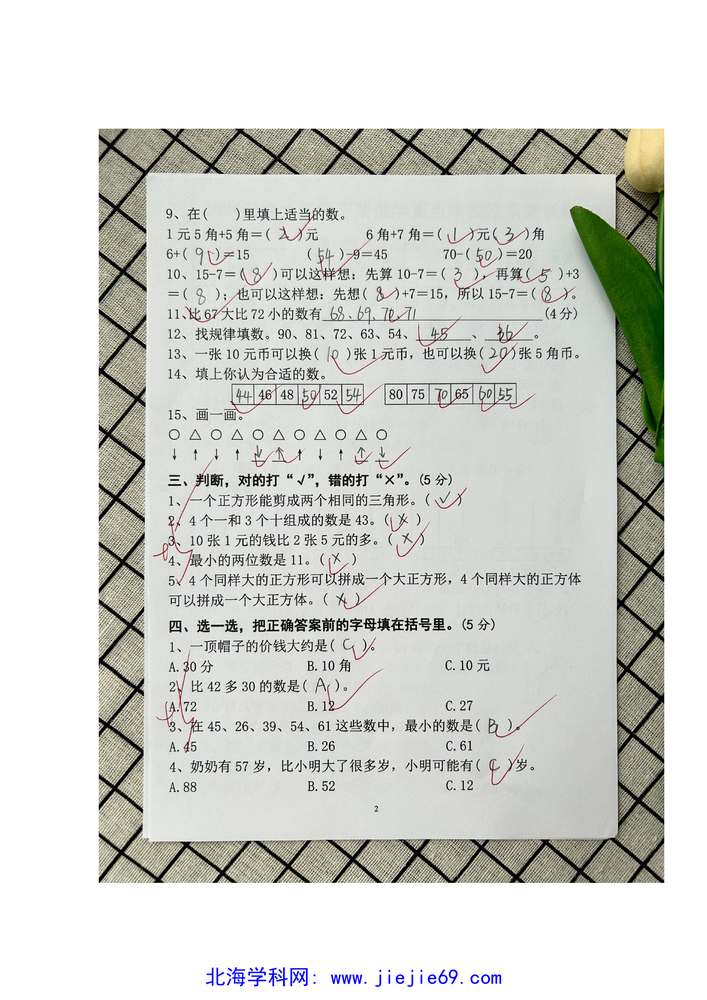 9、在(  )里填上适当的数。
1元5角+5角=( 2 )元  6角+7角=( 1 )元( 3 )角
6+( 9 )=15  ( 54 )-9=45  70-( 50 )=20
10、15-7=( 8 )可以这样想：先算10-7=( 3 )，再算( 5 )+3
=( 8 )；也可以这样想：先想( 8 )+7=15，所以15-7=( 8 )。
11、比67大比72小的数有 68、69、70、71 (4分)
12、找规律填数。90、81、72、63、54、 45 、 36 。
13、一张10元币可以换( 10 )张1元币，也可以换( 20 )张5角币。
14、填上你认为合适的数。
44 46 48 50 52 54  80 75 70 65 60 55
15、画一画。
○ △ ○ △ ○ △ ○ △ ○ △ ○
↓ ↑ ↓ ↑ ↓ ↑ ↓ ↑ ↓ ↑ ↓
三、判断，对的打“√”，错的打“×”。(5分)
1、一个正方形能剪成两个相同的三角形。( √ )
2、4个一和3个十组成的数是43。( × )
3、10张1元的钱比2张5元的多。( × )
4、最小的两位数是11。( × )
5、4个同样大的正方形可以拼成一个大正方形，4个同样大的正方体
可以拼成一个大正方体。( × )
四、选一选，把正确答案前的字母填在括号里。(5分)
1、一顶帽子的价钱大约是( C )。
A.30分  B.10角  C.10元
2、比42多30的数是( A )。
A.72  B.12  C.27
3、在45、26、39、54、61这些数中，最小的数是( B )。
A.45  B.26  C.61
4、奶奶有57岁，比小明大了很多岁，小明可能有( C )岁。
A.88  B.52  C.12
2
北海学科网：www.jiejie69.com